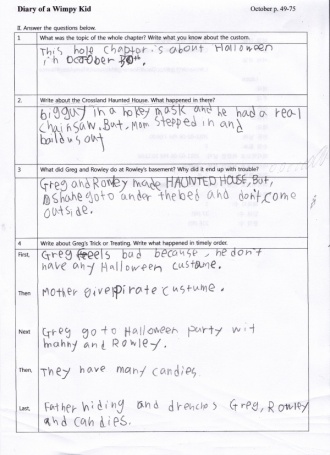 Diary of a Wimpy Kid October p. 49-75
II. Answer the questions below.
1 What was the topic of the whole chapter? Write what you know about the custom.
This hole chaptor is about Halloween
in october 30th.
2. Write about the Crossland Haunted House. What happened in there?
big guy in a hokey mask and he had a real
chainsaw, But, Mom stepped in and
baild us out
3 What did Greg and Rowley do at Rowley's basement? Why did it end up with trouble?
Greg and Rowley made HAUNTED HOUSE, But,
shane go to under the bed and don't come
outside.
4 Write about Greg's Trick or Treating. Write what happened in timely order.
First, Greg feels bad because, he don't
have any Halloween custume.
Then Mother give pirate custume.
Next Greg go to Halloween party wit
mahny and Rowley.
Then, They have many candies.
Last, Father hiding and drenchs Greg, Rowley
and candies.